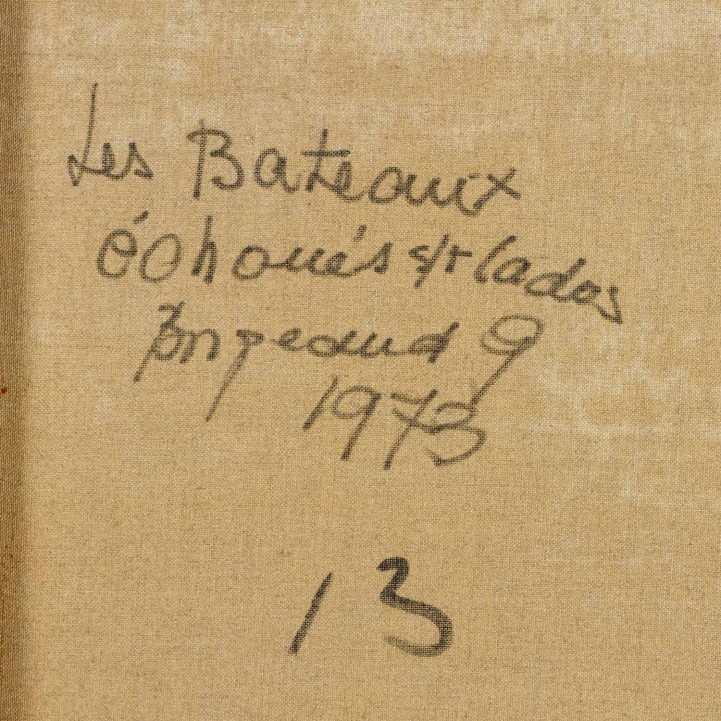 Les Bateaux
échoués s/r Cados
Borgeaud G
1973
13